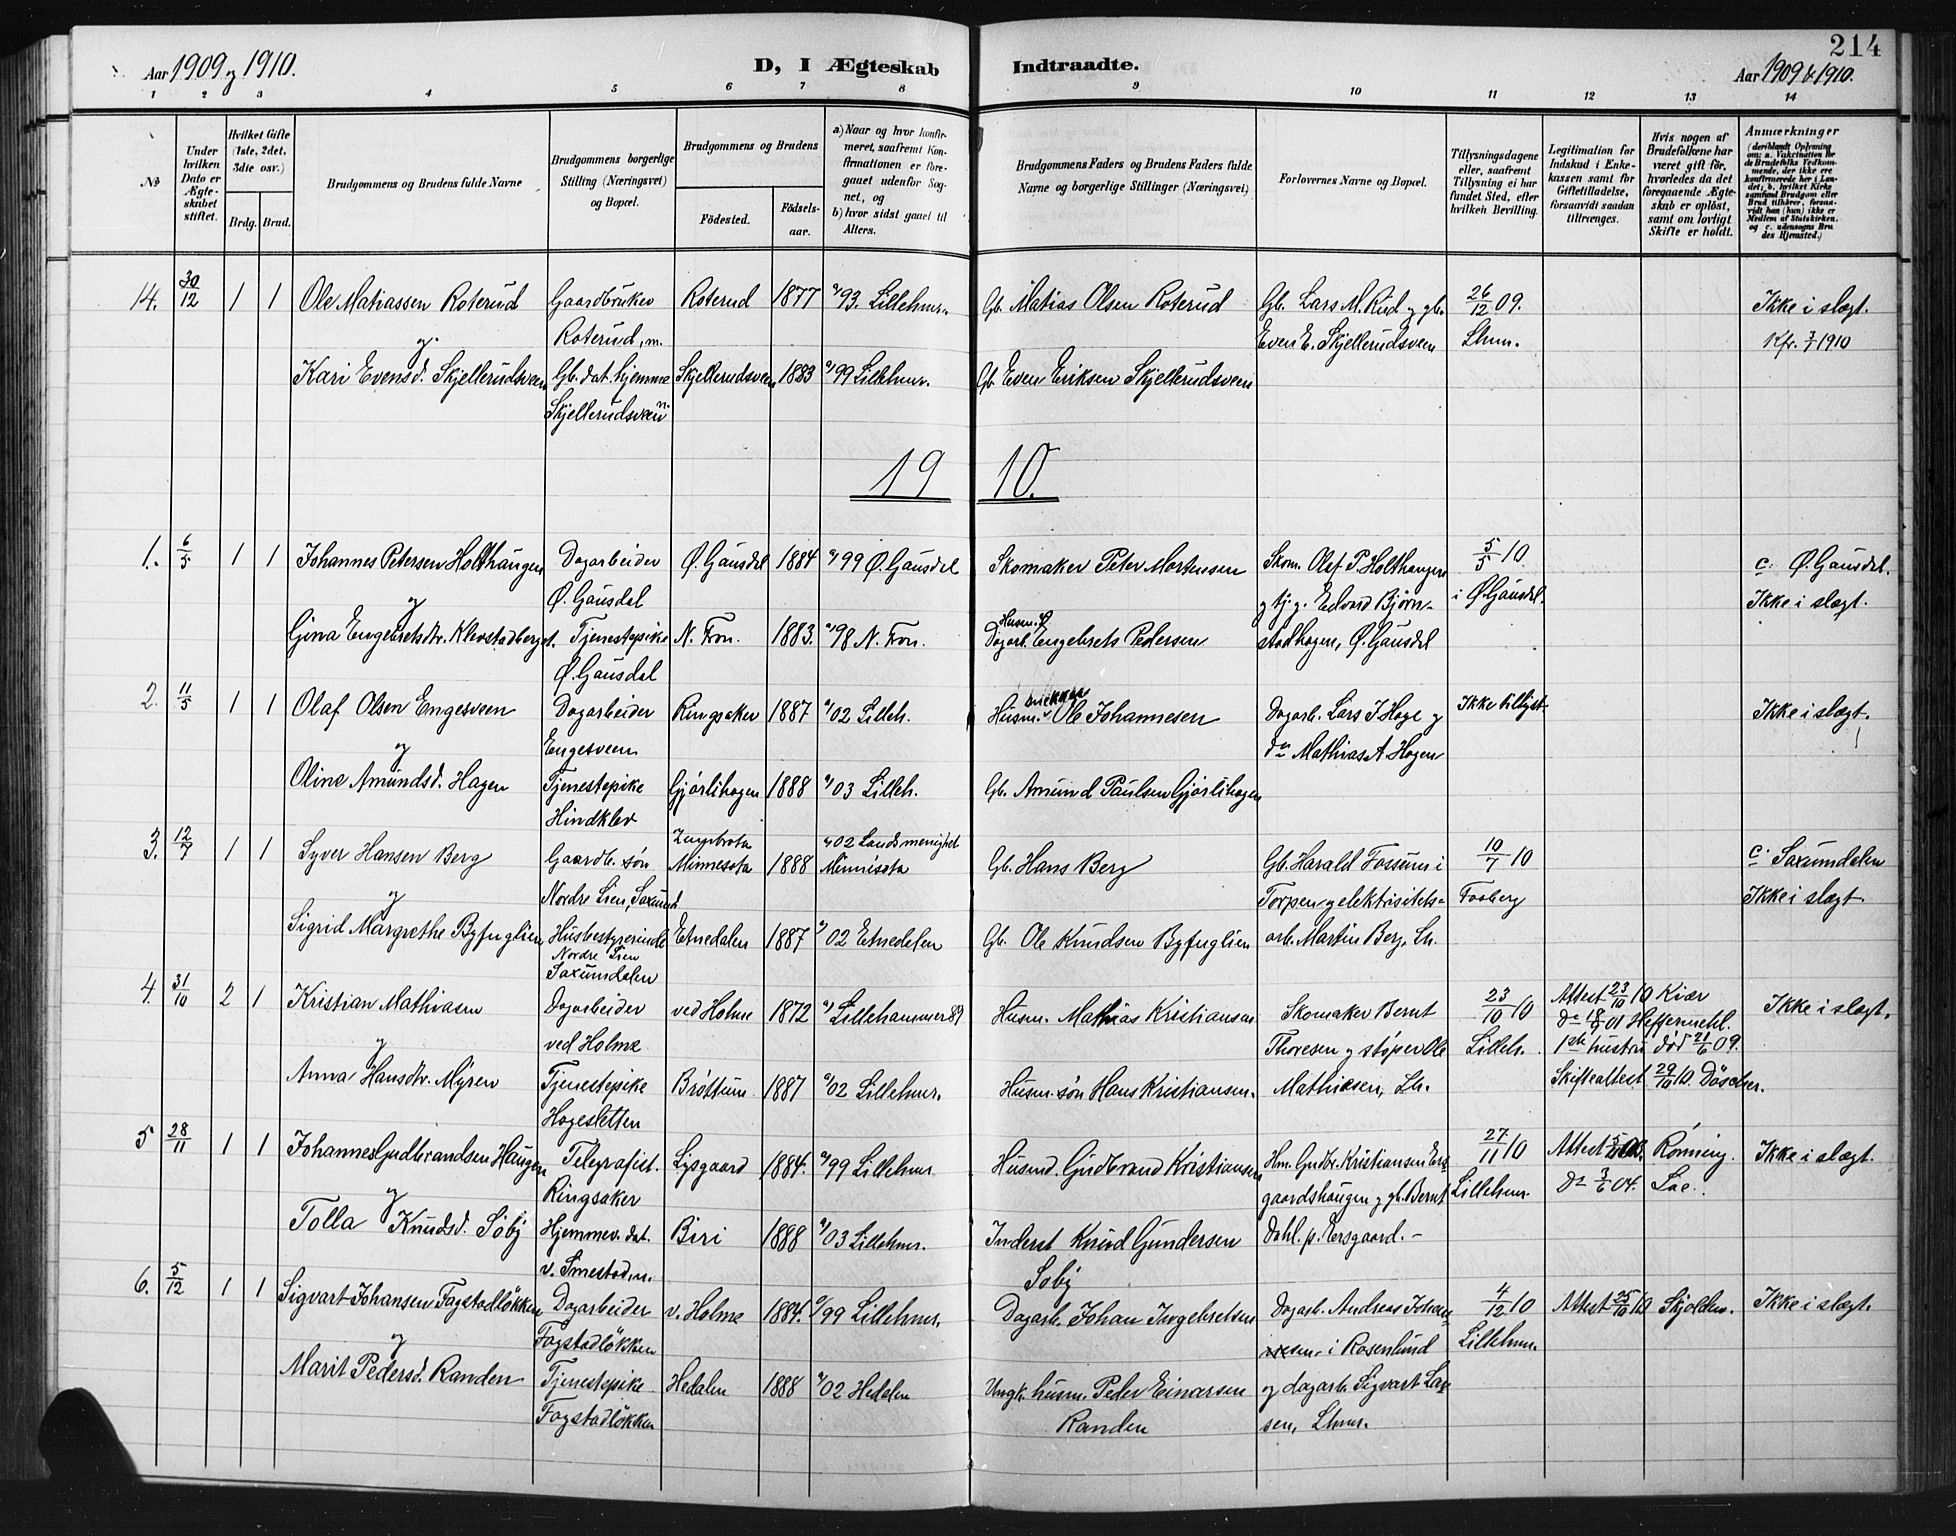 214
Aar 1909 og 1910.
D, I Ægteskab Indtraadte.
Aar 1909 & 1910.
1 2 3 4 5 6 7 8 9 10 11 12 13 14
No
Under hvilken Dato er Ægteskabet stiftet.
Hvilket Gifte (1ste, 2det, 3die osv.)
Brdg. Brud.
Brudgommens og Brudens fulde Navne
Brudgommens borgerlige Stilling (Næringsvei) og Bopæl.
Brudgommens og Brudens
Födested. Födselsaar.
a) Naar og hvor konfirmeret, saafremt Konfirmationen er foregaaet udenfor Sognet, og
b) hvor sidst gaaet til Alters.
Brudgommens Faders og Brudens Faders fulde Navne og borgerlige Stillinger (Næringsvei)
Forlovernes Navne og Bopæl.
Tillysningsdagene eller, saafremt Tillysning ei har fundet Sted, efter hvilken Bevilling.
Legitimation for Indskud i Enkekassen samt for Giftetilladelse, forsaavidt saadan tiltrænges.
Hvis nogen af Brudefolkene har været gift för, hvorledes da det foregaaende Ægteskab er oplöst, samt om lovligt Skifte er holdt.
Anmærkninger
(deriblandt Oplysning om: a. Vakcination for de Brudefolks Vedkommende, der ikke ere konfirmerede her i Landet; b. hvilket Kirkesamfund Brudgom eller Brud tilhörer, forsaavidt han (hun) ikke er Medlem af Statskirken, og c. udensogns Brudes Hjemsted.)
14. 30/12 1 1 Ole Matiassen Roterud Gaardbruker Roterud 1877 93. Lillehmr. Gb. Matias Olsen Roterud Gb. Lars M. Rud og gb. 26/12 09. Ikke i slægt.
og Roterud, m. Even E. Skjellerudsveen Lhmr. Kfr. 3/1 1910
Kari Evensd. Skjellerudsveen Gb. dat. hjemme Skjellerudsveen 1883 99 Lillehmr. Gb. Even Eriksen Skjellerudsveen
Skjellerudsveen
1910.
1. 6/5 1 1 Johannes Petersen Holthaugen Dagarbeider Ø. Gausdal 1884 99 Ø. Gausdal Skomaker Peter Mortensen Skom. Olaf P. Holthaugen 5/5 10 c. Ø. Gausdal.
og Ø. Gausdal og tj.g. Edvard Bjørn- i Ø. Gausdal. Ikke i slægt.
Gina Engebretsdtr. Klevstadberget. Tjenestepike N. Fron. 1883. 98 N. Fron. Husm. Dagarb. Engebrets Pedersen stadhagen, Ø. Gausdal
Ø. Gausdal
2. 11/5 1 1 Olaf Olsen Engesveen Dagarbeider Ringsaker 1887 02 Lilleh. Husm. Ole Johannesen Dagarb. Lars J. Hage og Ikke tillyst. Ikke i slægt.
og Engesveen do Mathias A. Hagen
Oline Amundsd. Hagen Tjenestepike Gjørlihagen 1888 03 Lilleh. Gb. Amund Paulsen Gjørlihagen
Hindklev
3. 12/7 1 1 Syver Hansen Berg Gaardb. søn Zumbrota Minnesota 1888 02 Lands menighet Minnesota Gb. Hans Berg Gb. Harald Fossum i 10/7 10 c. Saxumdalen
og Nordre Lien, Saxumd. Torpen og elektrisitets- Faaberg Ikke i slægt.
Sigrid Margrethe Byfuglien Husbestyrerinde Etnedalen 1887 02 Etnedalen Gb. Ole Knudsen Byfuglien arb. Martin Berg, Lh.
Nordre Lien
Saxumdalen
4. 31/10 2 1 Kristian Mathiasen Dagarbeider ved Holme 1872 Lillehammer 89 Husm. Mathias Kristiansen Skomaker Bernt 23/10 10 Attest 23/10 10 Kiær Ikke i slægt.
og ved Holme Thoresen og støper Ole Lilleh. do 18/9 01 Heffermehl.
Anna Hansdtr. Myren Tjenestepike Brøttum 1887 02 Lillehmr. Husm. søn Hans Kristiansen. Mathiesen, Lh. 1ste hustru død 21/6 09.
Hagesletten Skifteattest 29/10 10. Döscher.
5 28/11 1 1 Johannes Gudbrandsen Haugen Telegrafist. Lysgaard 1884. 99 Lillehmr. Husmd. Gudbrand Kristiansen Hm. Gudbr. Kristiansen Ers- 27/11 10 Attest Rønning. Ikke i slægt.
og Ringsaker gaardshaugen og gb. Bernt Lillehmr. do 3/6 04. Lae.
Tolla Knudsd. Søby Hjemmev. dat. Biri 1888 03 Lillehmr. Inderst Knud Gundersen Dahl. p. Ersgaard. –
v. Smestad, m. Søby
6. 5/12 1 1 Sigvart Johansen Fagstadløkken Dagarbeider v. Holme 1884. 99 Lillehmr. Dagarb. Johan Ingebretsen Dagarb. Andreas Johan- 4/12 10 Attest 25/10 10 Skjolden. Ikke i slægt.
og Fagstadløkken sen i Rosenlund Lillehmr.
Marit Pedersd. Randen Tjenestepike Hedalen 1888 02 Hedalen Ungk. husm. Peter Einarsen og dagarb. Sigvart Lar-
Fagstadløkken Randen sen, Lhmr.